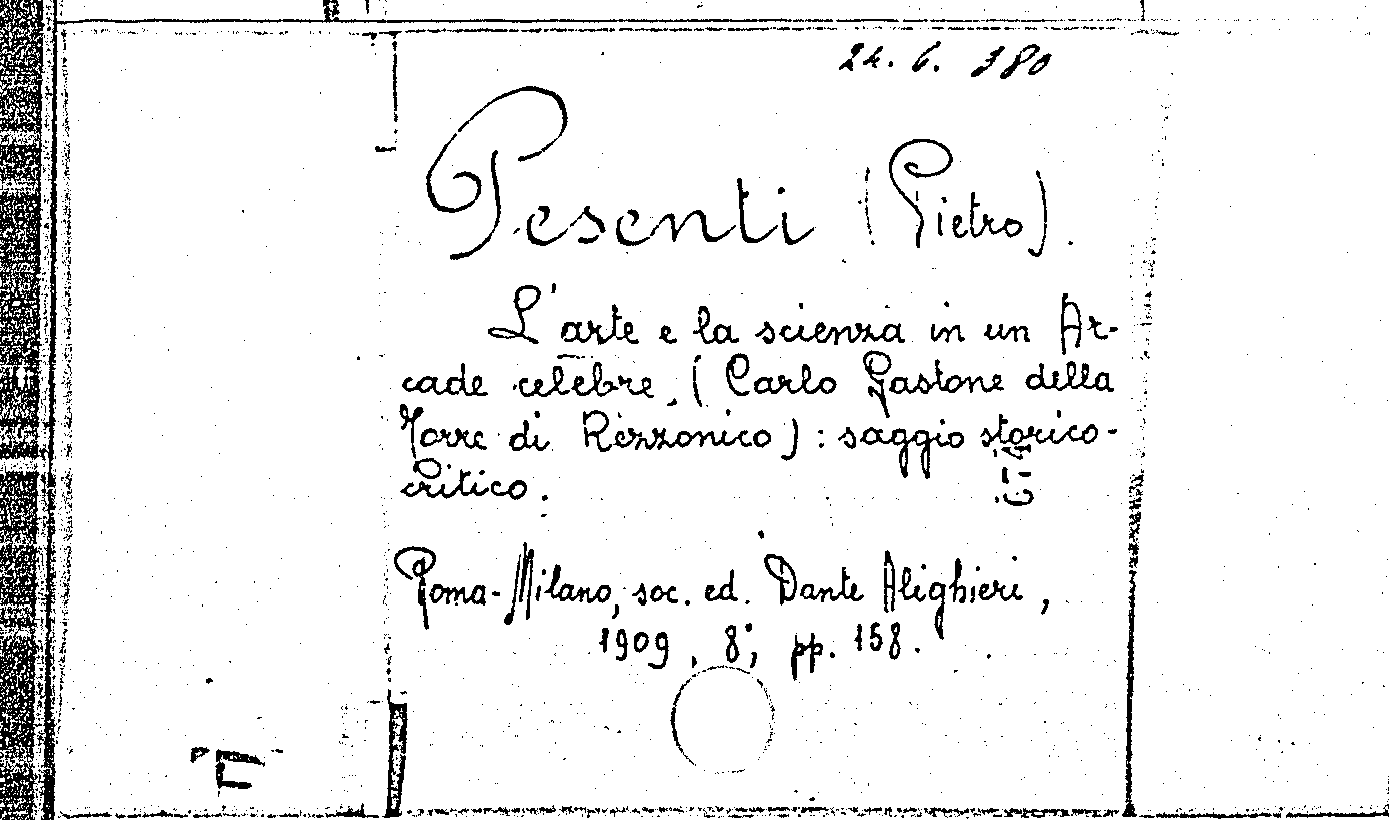 24. 6. 380
Pesenti (Pietro).
L'arte e la scienza in un Ar-
cade celebre. (Carlo Gastone della
Torre di Rezzonico) : saggio storico-
critico.
Roma-Milano, soc. ed. Dante Alighieri,
1909, 8°, pp. 158.